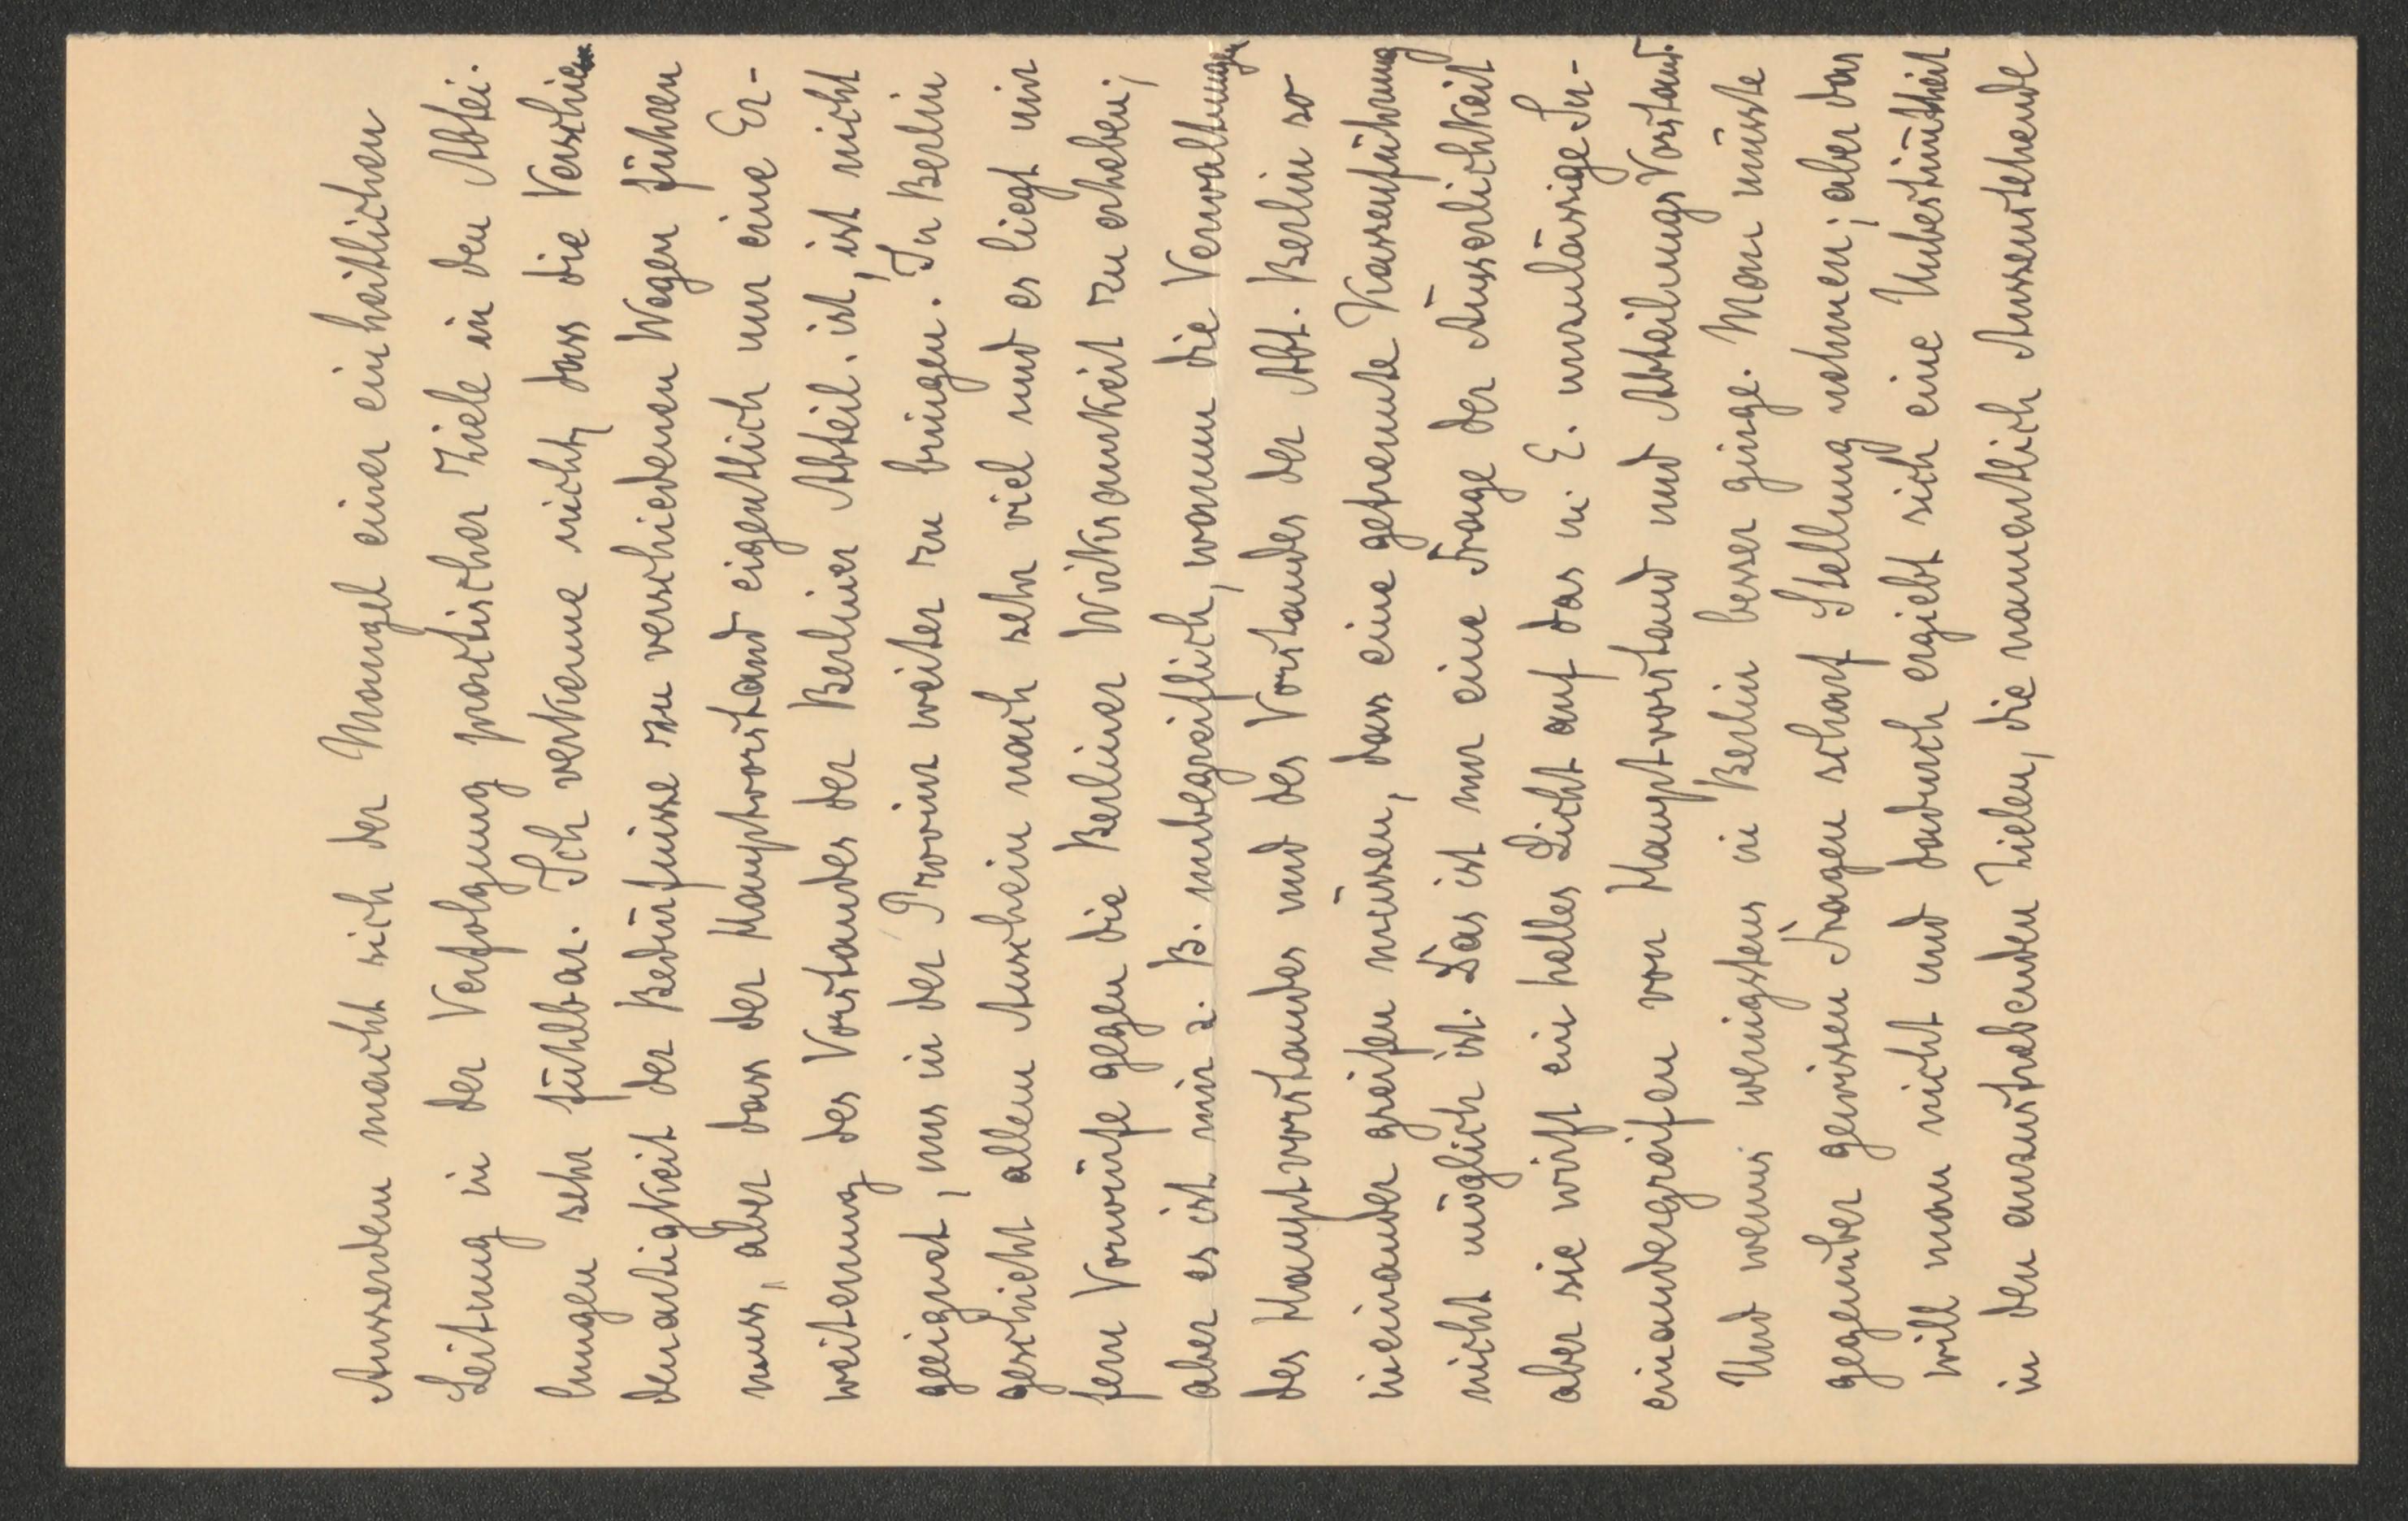 Ausserdem macht sich der Mangel einer einheitlichen
Leitung in der Verfolgung practischer Ziele in den Abtei-
lungen sehr fühlbar. Ich verkenne nicht, dass die Verschie
denartigkeit der Bedürfnisse zu verschiedenen Wegen führen
muss, aber dass der Hauptvorstand eigentlich nur eine Er-
weiterung des Vorstandes der Berliner Abteil. ist, ist nicht
geeignet, uns in der Provinz weiter zu bringen. In Berlin
geschieht allem Anschein nach sehr viel und es liegt mir
fern Vorwürfe gegen die Berliner Wirksamkeit zu erheben;
aber es ist mir z. B. unbegreiflich, warum die Verwaltungen
des Hauptvorstandes und des Vorstandes der Abt. Berlin so
ineinander greifen müssen, dass eine getrennte Kassenführung
nicht möglich ist. Das ist nur eine Frage der Äusserlichkeit
aber sie wirft ein helles Licht auf das m. E. unzulässige In-
einandergreifen von Hauptvorstand und Abteilungs Vorstand.
Und wenns wenigstens in Berlin besser ginge. Man müsste
gegenüber gewissen Fragen scharf Stellung nehmen; aber das
will man nicht und dadurch ergiebt sich eine Unbestimtheit
in den anzustrebenden Zielen, die namentlich Aussenstehende